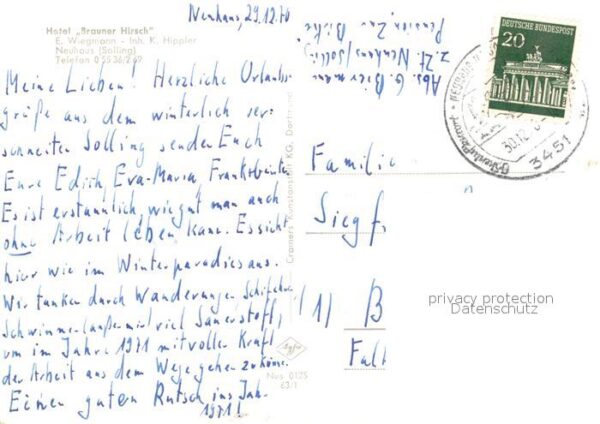 Neuhaus, 29.12.70
Hotel „Brauner Hirsch"
E. Wiegmann - Inh. K. Hippler
Neuhaus (Solling)
Telefon 0 55 36/2 69
Meine Lieben! Herzliche Urlaubs-
grüße aus dem winterlich ver-
schneiten Solling senden Euch
Eure Edith, Eva-Maria, Frank
Es ist erstaunlich, wie gut man auch
ohne Arbeit leben kann. Es sieht
hier wie im Winterparadies aus.
Wir tanken durch Wanderungen
Schwimmen außen mit viel Sauerstoff,
um im Jahre 1971 mit voller Kraft
der Arbeit aus dem Wege gehen zu können.
Einen guten Rutsch ins Jahr
1971!
Abs. G. Biermann
z. Zt. Neuhaus/Solling
Pension
Cramers Kunstanstalt KG, Dortmund
Agfa
Nos 0125
63/1
DEUTSCHE BUNDESPOST
20
30.12
3451
Familie
Siegf.
1/1 B
Falt
privacy protection
Datenschutz